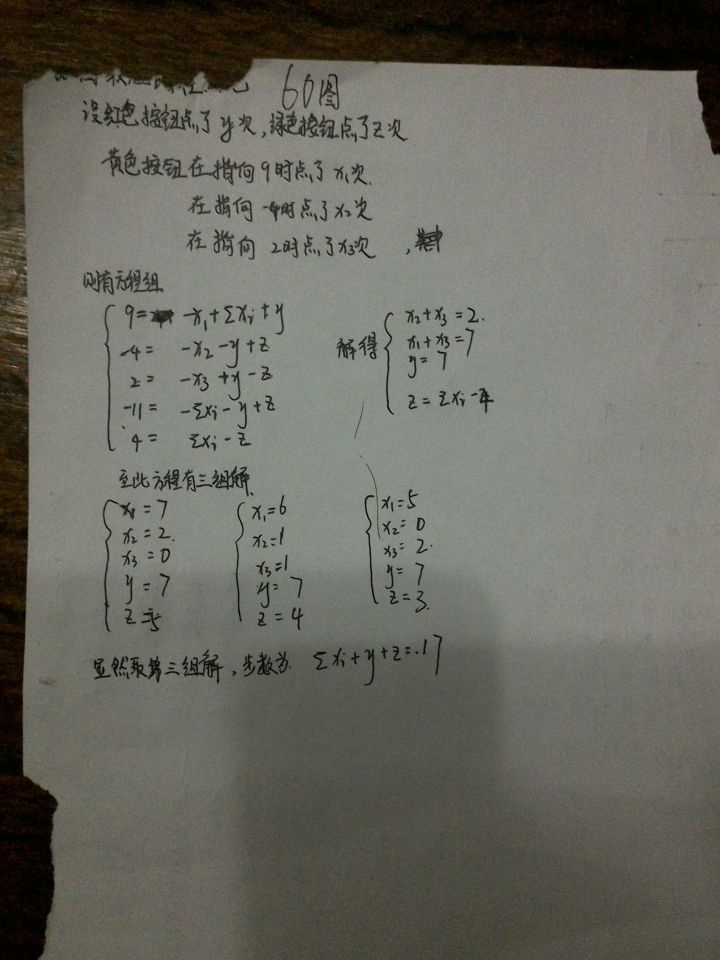 60图
设红色按钮点了y次,绿色按钮点了z次
黄色按钮在指向9时点了x₁次.
在指向-4时点了x₂次
在指向2时点了x₃次,
则有方程组
9= -x₁+Σxᵢ+y
-4= -x₂-y+z
2= -x₃+y-z
-11= -Σxᵢ-y+z
4= Σxᵢ-z
解得
x₂+x₃=2.
x₁+x₃=7
y=7
z=Σxᵢ-4
至此方程有三组解.
x₁=7
x₂=2.
x₃=0
y=7
z=5
x₁=6
x₂=1
x₃=1
y=7
z=4
x₁=5
x₂=0
x₃=2.
y=7
z=3.
显然取第三组解,步数为 Σxᵢ+y+z=17